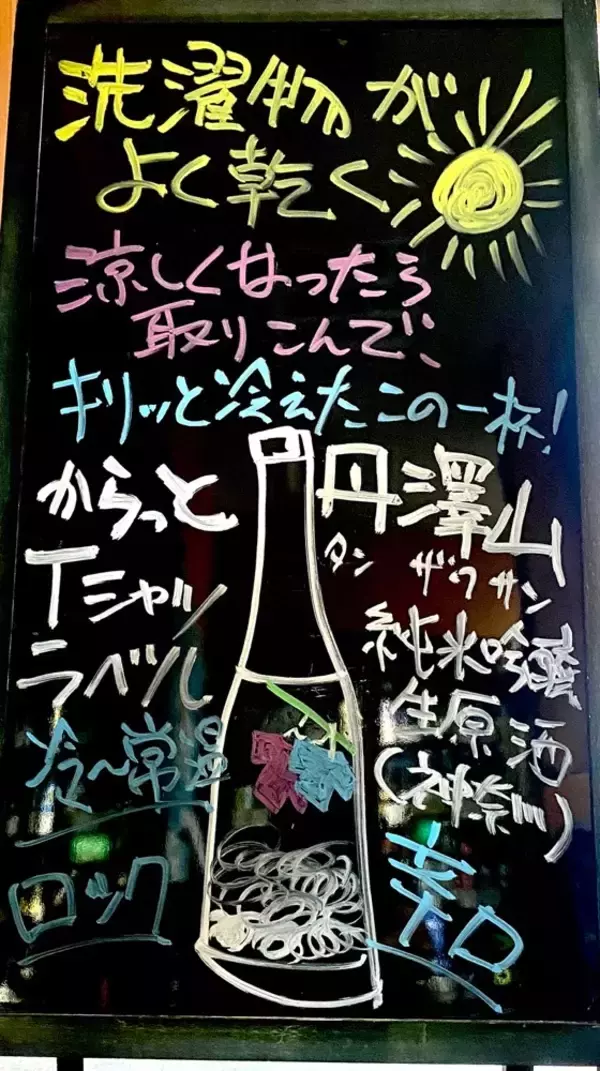 洗濯物が
よく乾く
涼しくなったら
取りこんで、
キリッと冷えたこの一杯!
からっと
Tシャツ
ラベル
冷〜常温
ロック
丹澤山
タン ザワ サン
純米吟醸
生原酒
(神奈川)
辛口